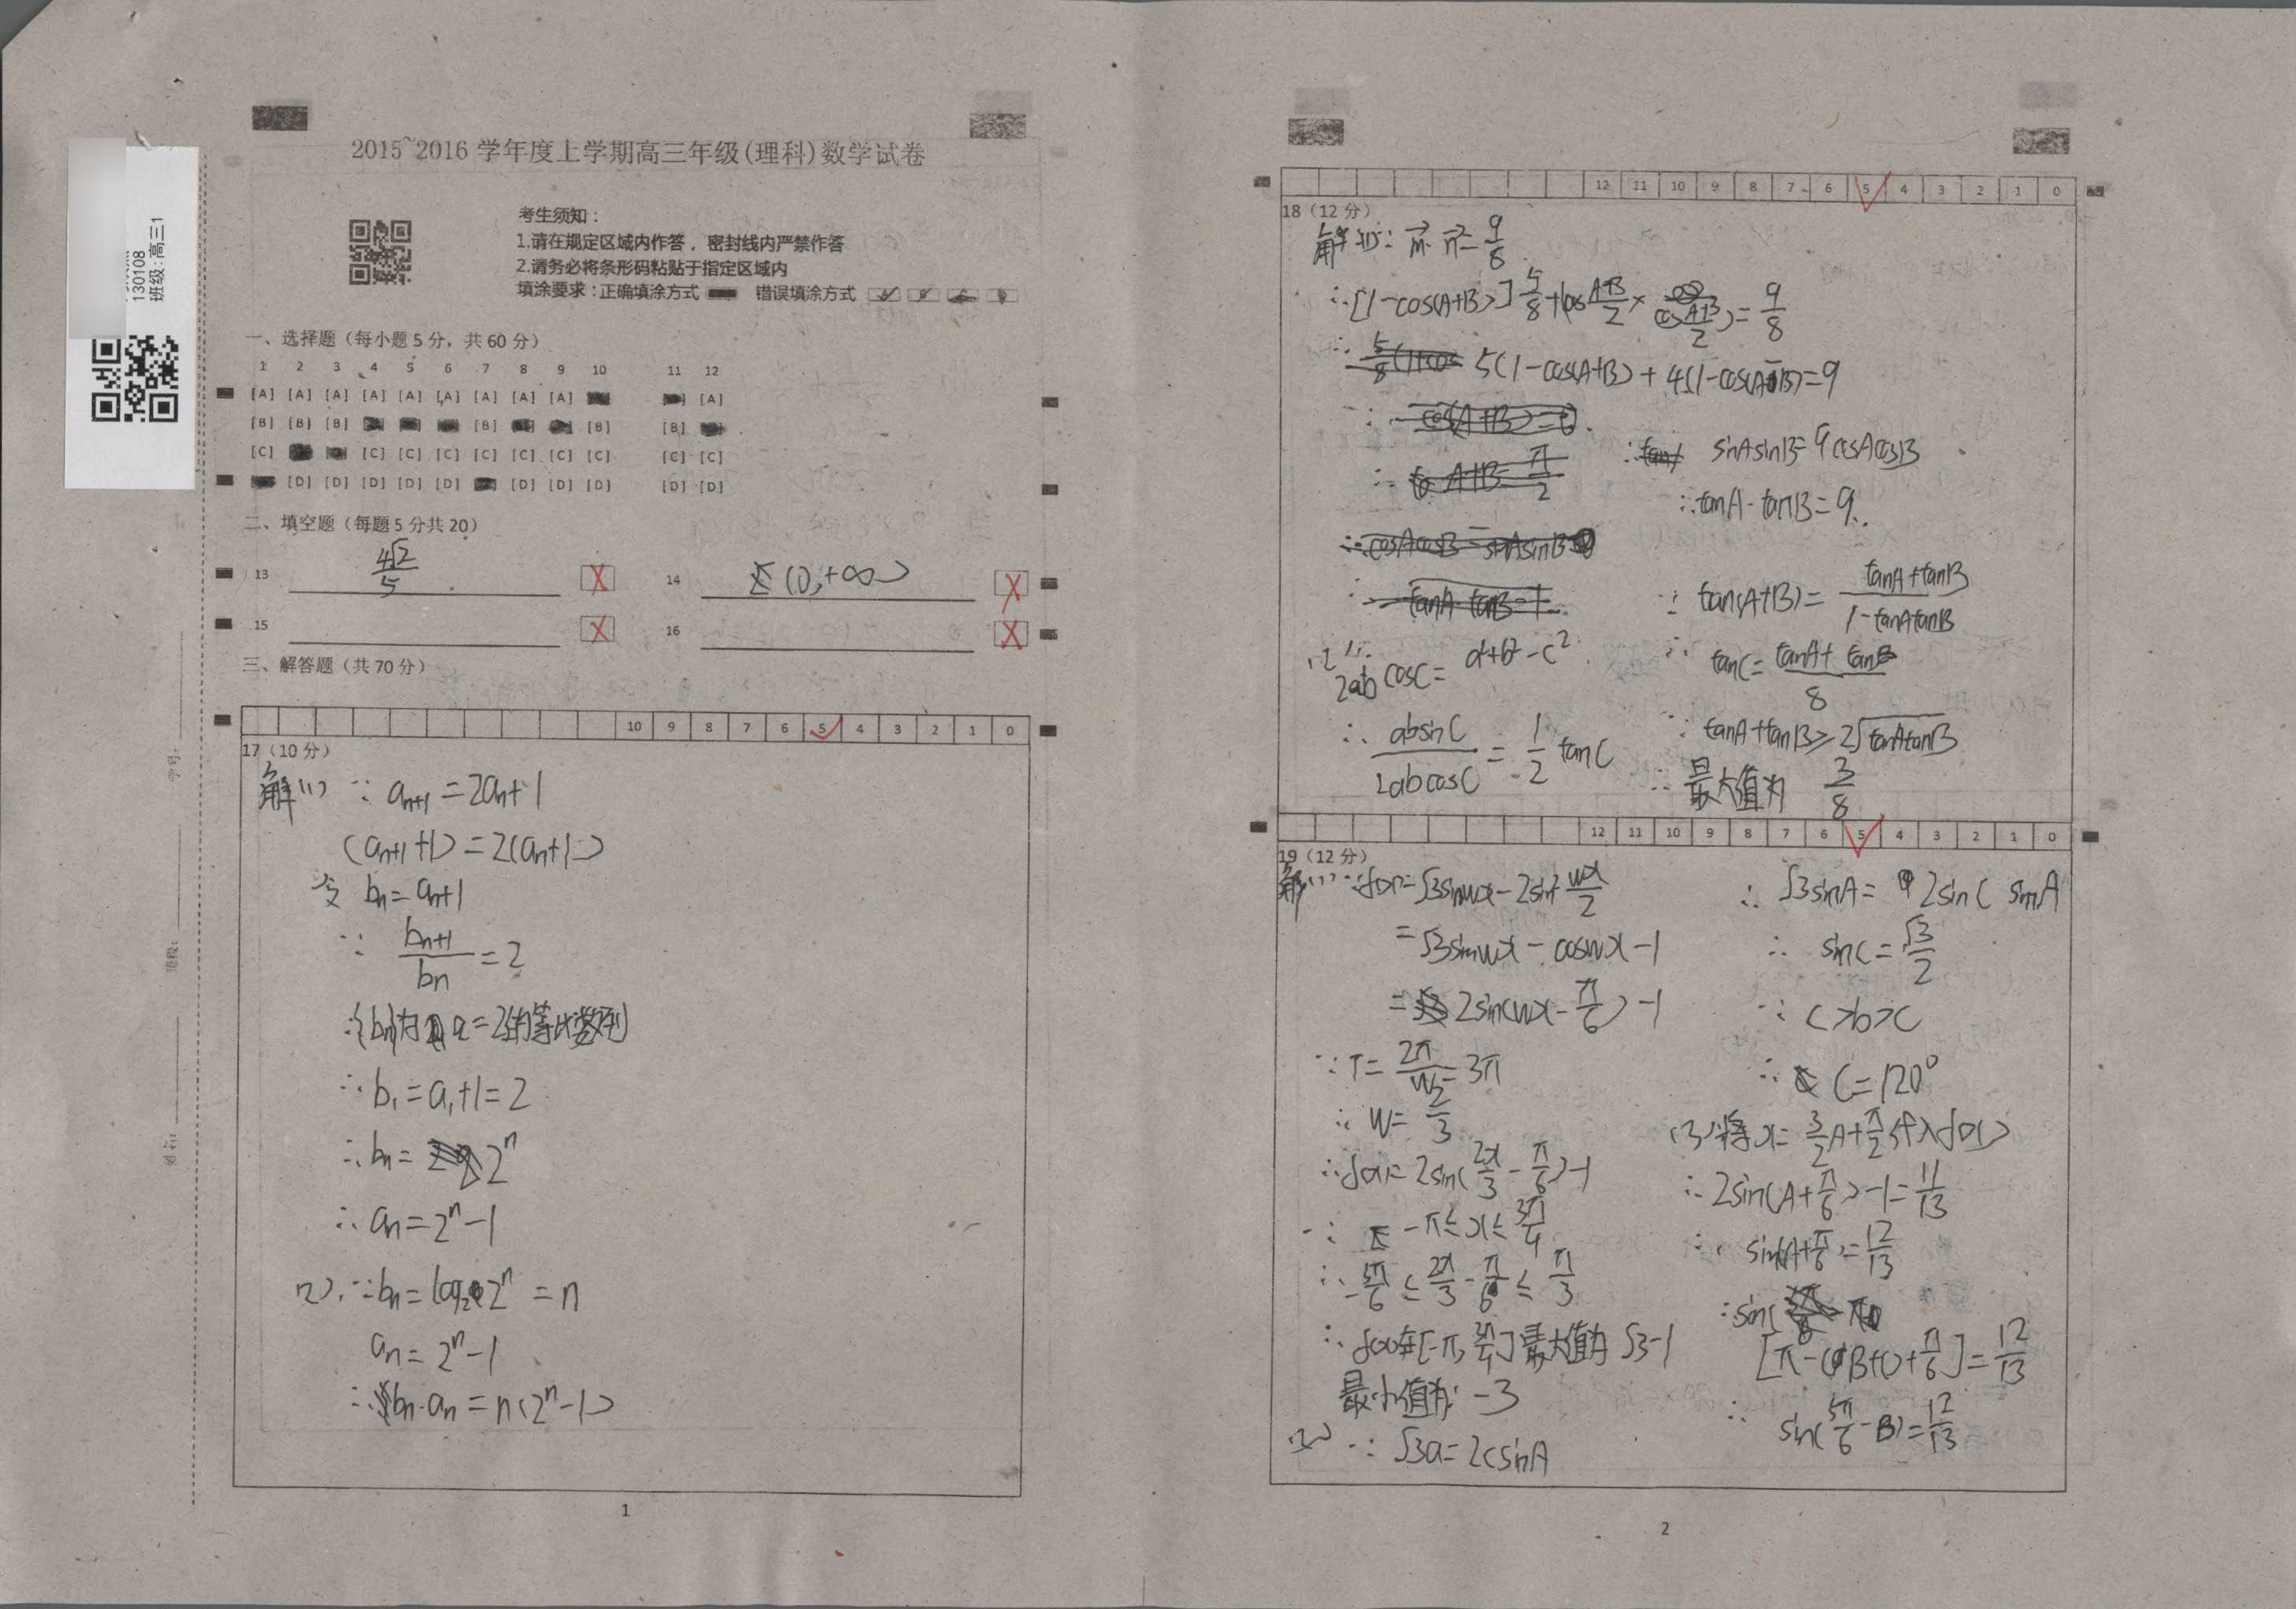 130108
班级:高三1
2015~2016 学年度上学期高三年级(理科)数学试卷
考生须知:
1.请在规定区域内作答,密封线内严禁作答
2.请务必将条形码粘贴于指定区域内
填涂要求:正确填涂方式 错误填涂方式
一、选择题(每小题5分,共60分)
1 2 3 4 5 6 7 8 9 10 11 12
[A] [A] [A] [A] [A] [A] [A] [A] [A] [A]
[B] [B] [B] [B] [B] [B]
[C] [C] [C] [C] [C] [C] [C] [C] [C] [C]
[D] [D] [D] [D] [D] [D] [D] [D] [D] [D]
二、填空题(每题5分共20)
13 4√2/5 14 (0,+∞)
15 16
三、解答题(共70分)
10 9 8 7 6 5 4 3 2 1 0
17(10分)
解(1) ∵ aₙ₊₁=2aₙ+1
(aₙ₊₁+1)=2(aₙ+1)
令 bₙ=aₙ+1
∵ bₙ₊₁/bₙ=2
∴{bₙ}为q=2的等比数列
∵b₁=a₁+1=2
∴bₙ=2ⁿ
∴aₙ=2ⁿ-1
(2)∵bₙ=log₂2ⁿ=n
aₙ=2ⁿ-1
∴bₙ·aₙ=n(2ⁿ-1)
1
姓名:
班级:
学号:
12 11 10 9 8 7 6 5 4 3 2 1 0
18(12分)
解(1)∵m·n=9/8
∴[1-cos(A+B)]5/8+cos(A+B)/2×cos(A+B)/2=9/8
∴5(1-cos(A+B))+4(1-cos(A-B))=9
∴sinAsinB=9cosAcosB
∴tanA·tanB=9
(2)∵
2abcosC=a²+b²-c²
∴absinC/2abcosC=1/2 tanC
∵tan(A+B)=tanA+tanB/1-tanAtanB
∴tanC=tanA+tanB/8
∵tanA+tanB≥2√tanAtanB
∴最大值为3/8
12 11 10 9 8 7 6 5 4 3 2 1 0
19(12分)
解(1)∵f(x)=√3sinwx-2sin²wx/2
=√3sinwx-coswx-1
=2sin(wx-π/6)-1
∵T=2π/w=3π
∴w=2/3
∴f(x)=2sin(2x/3-π/6)-1
∵-π≤x≤3π/4
∴-5π/6≤2x/3-π/6≤π/3
∴f(x)在[-π,3π/4]最大值为√3-1
最小值为-3
(2)∵√3a=2csinA
∴√3sinA=2sinC sinA
∴sinC=√3/2
∵c>b>c
∴C=120°
(3)将x=3/2A+π/2代入f(x)
∴2sin(A+π/6)-1=11/13
∴sin(A+π/6)=12/13
∴sin
[π-(B+C)+π/6]=12/13
∴sin(5π/6-B)=12/13
2